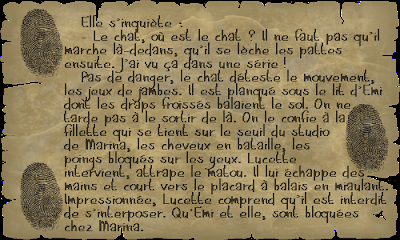 Elle s'inquiète :
- Le chat, où est le chat ? Il ne faut pas qu'il
marche là-dedans, qu'il se lèche les pattes
ensuite. J'ai vu ça dans une série !
Pas de danger, le chat déteste le mouvement,
les jeux de jambes. Il est planqué sous le lit d'Emi
dont les draps froissés balaient le sol. On ne
tarde pas à le sortir de là. On le confie à la
fillette qui se tient sur le seuil du studio
de Marina, les cheveux en bataille, les
poings bloqués sur les yeux. Lucette
intervient, attrape le matou. Il lui échappe des
mains et court vers le placard à balais en miaulant.
Impressionnée, Lucette comprend qu'il est interdit
de s'interposer. Qu'Emi et elle, sont bloquées
chez Marina.